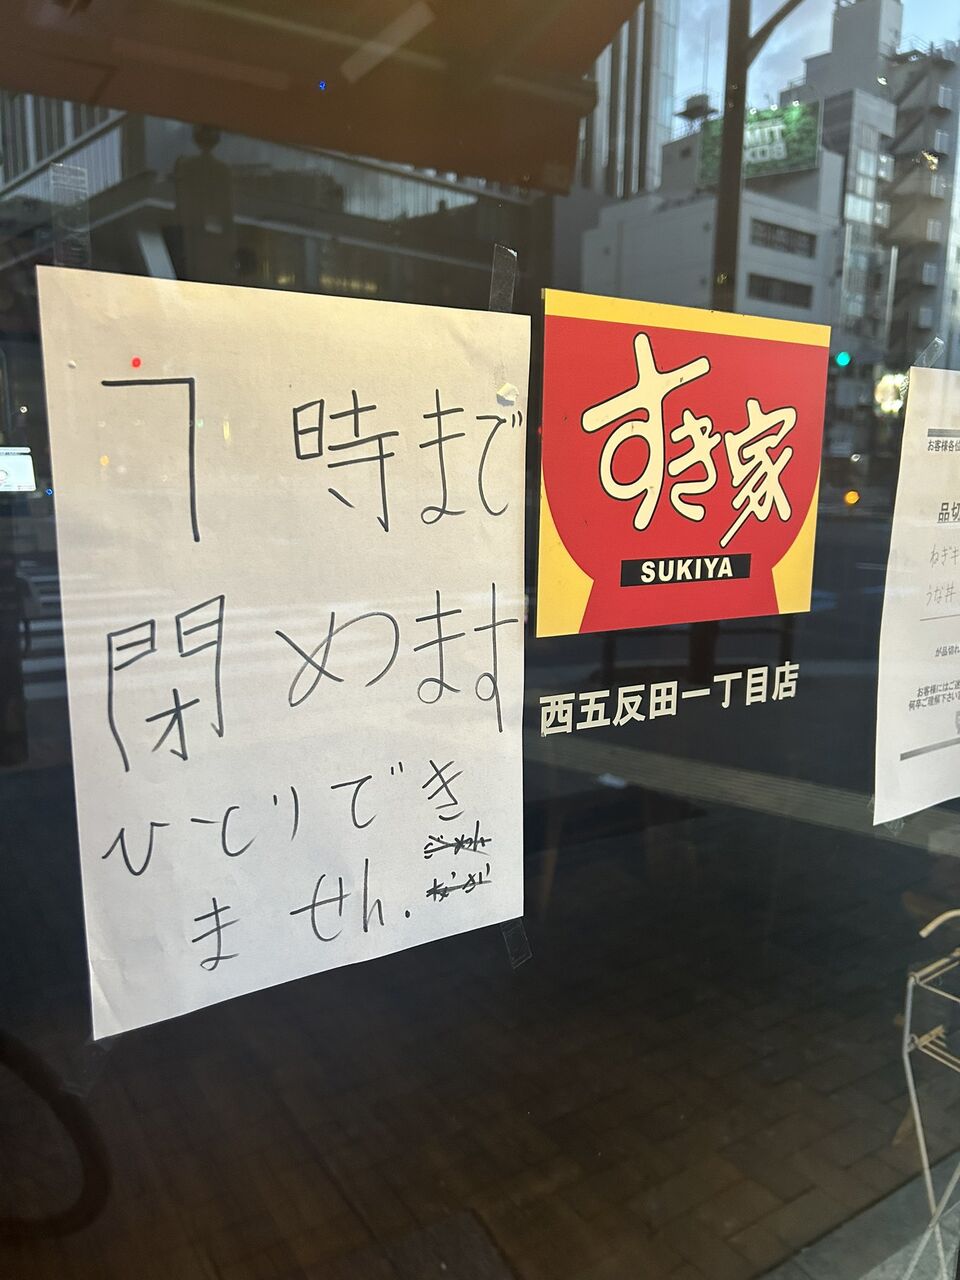 7時まで
閉めます
ひとりでき
ません.
すき家
SUKIYA
西五反田一丁目店
お客様各位
品切
ねぎキ
うな丼
が品切れ
お客様にはご迷
何卒ご理解下さい